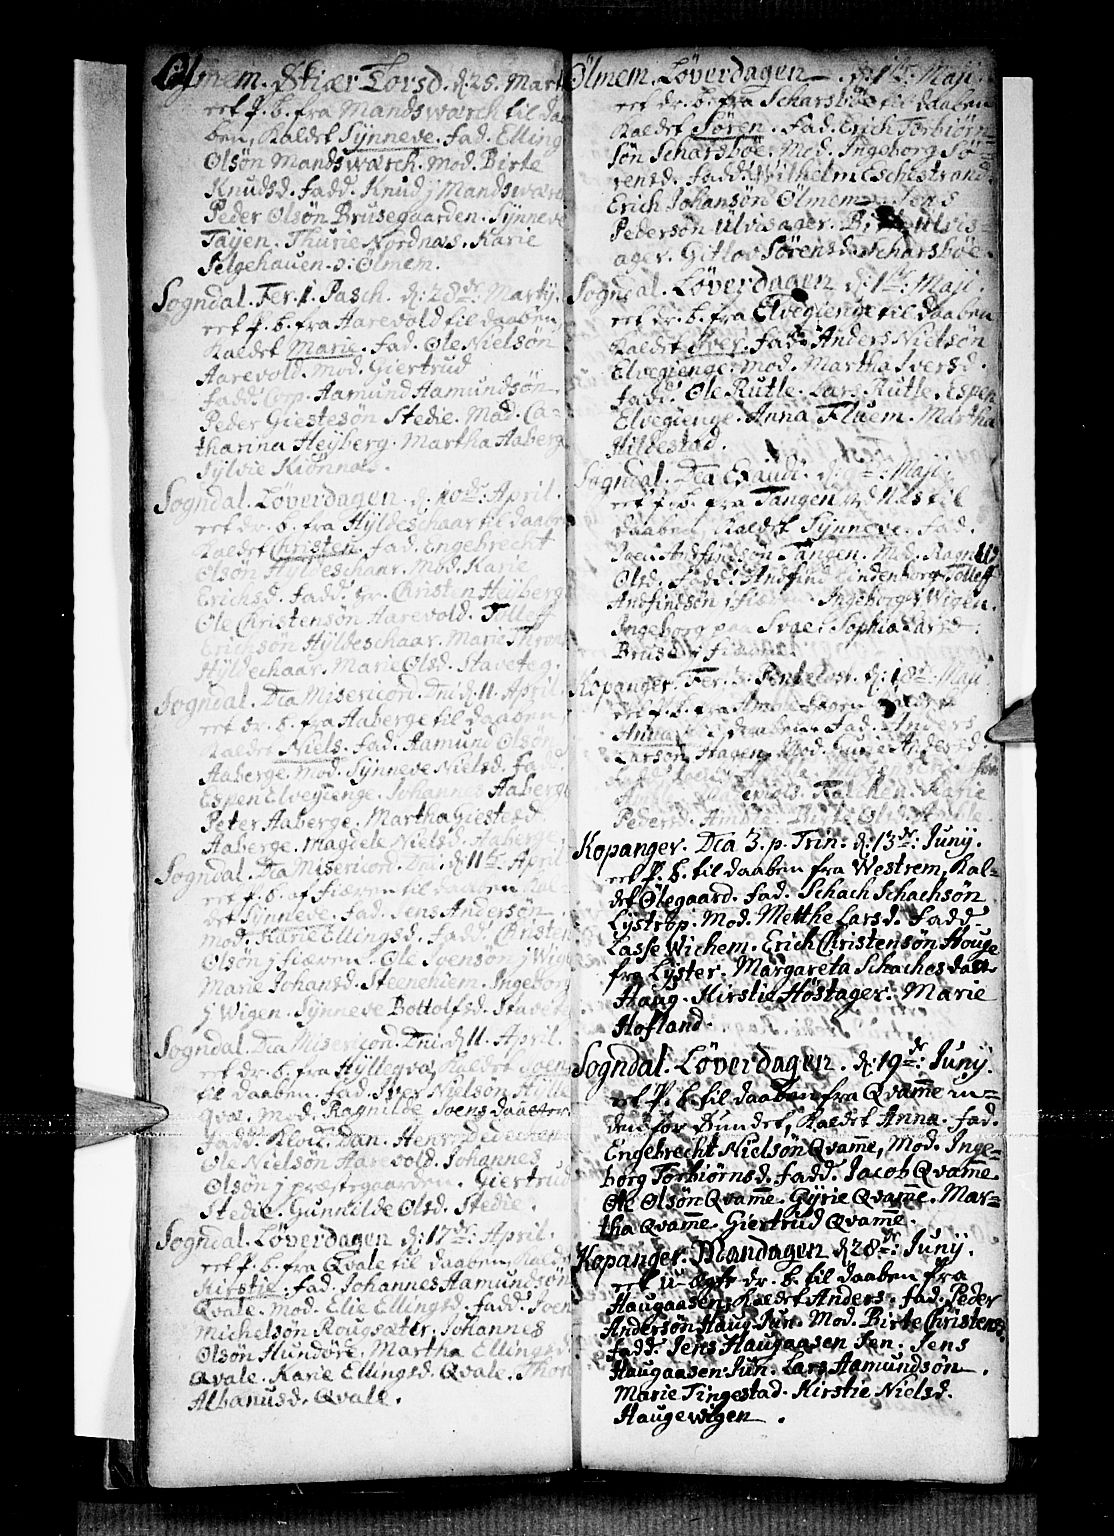 Ølmem. Skiær Torsd. d. 25. Martÿ
eet P. b. fra Mandswarch til daa
ben, kaldet Synneve. fad. Elling
Olsön Mandswarch. Mod. Birte
Knudsd. fadd. Knud j Mandswarch
Peder Olsön Brusegaarden. Synneve
Tayen. Thurie Nordnæs. Karie
Selgehauen. o: Ølmem.
Sogndal. Fer. 1. Pasch. d: 28de: Martÿ.
eet P. b. fra Aarevold til daaben
kaldet Marie. fad. Ole Nielsön
Aarevold. Mod. Giertrud
fadd. Corp. Aamund Aamundsön
Peder Giestesön Stedie. Mad. Ca-
tharina Heyberg. Martha Aaberge
Sylvie Kiönnas.
Sogndal. Löverdagen d. 10de: April.
eet dr. b. fra Hyldeschaar til daaben
kaldet Christen. fad. Engebrecht
Olsön Hyldeschaar. Mod. Karie
Erichsd. fadd. Hr. Christen Heyberg
Ole Christensön Aarevold. Tolleff
Erichsön Hyldeschaar. Marie
Hyldeschaar. Marie Olsd. Staveteg.
Sogndal. Dca Misericord. Dni d 11. April.
eet dr. b. fra Aaberge til daaben
kaldet Niels. fad. Aamund Olsön
Aaberge. Mod. Synneve Nielsd. fadd.
Espen Elvegienge. Johannes Aaberge
Peter Aaberge. Martha Giestesd.
Aaberge. Magdete Nielsd. Aaberge
Sogndal. Dca Misericord. Dni. d 11te April
eet P. b. af fiæren til daaben kal-
det Synneve. fad. Jens Andersön
Mod. Karie Ellingsd. fadd. Christen
Olsön j fiæren. Ole Svensön j Wigen
Marie Johansd. Steenehiem. Ingeborg
j Wigen. Synneve Bottolfsd. Stavete
Sogndal. Dca Misericon. Dni d 11. April.
eet dr. b. fra Hyllegva, kaldet Joen
til daaben. fad. Iver Nielsön Hylle
qva. Mod. Ragnilde Joens daatter.
fadd. Klock. Dan. Henr. Dedechen
Ole Nielsön Aarevold. Johannes
Olsön j præstegaarden. Giertrud
Stedie. Gunnilde Olsd. Stedie.
Sogndal. Löverdagen d. 17de: April.
eet P. b. fra Qvale til daaben kaldet
Kirstie. fad. Johannes Aamundsön
Qvale. Mod. Elie Ellingsd. fadd. Joen
Michelsön Rougsæter. Johannes
Olsön Hundere. Martha Ellingsd.
Qvale. Karie Ellingsd. Qvale.
Albanusd. Qvale.
Ølmem. Löverdagen. d. 1te: Maji.
eet dr. b. fra Scharsböe til daaben
kaldet Sören. fad. Erich Torbiörn-
sön Scharsböe. Mod. Ingeborg Sö-
rensd. fadd. Wilhelm Eschistrand
Erich Johansön Ølmem. Jens
Pedersön Ulvisager. Ulvis-
ager. Gitlov Sörensd. Scharsböe.
Sogndal. Löverdagen d. 1te: Maji.
eet dr. b. fra Elvegienge til daaben
kaldet Iver. fad. Anders Nielsön
Elvegienge. Mod. Martha Iversd.
fadd. Ole Rutle. Lars Rutle. Espen
Elvegienge. Anna Fluem. Martha
Hildestad.
Sogndal. Dca Exaudi. d. 9de: Maji.
eet P. b. fra Tangen til
daaben kaldet Synneve. fad.
Poel Andfindsön Tangen. Mod. Ragnild
Olsd. fadd. Andfind Lindenborg. Tolleff
Andfindsön j fiæren. Ingeborg j Wigen.
Ingeborg paa Svae. Sophia Larsd.
Kopanger. Fer. 3. Pentecost. d. 18de: Maji
eet P. b. fra
Anna til daaben. fad. Anders
Larsön Hagen. Mod. Andersd.
Marie
Pedersd. Amble. Birte Olsd. Amble.
Kopanger. Dca 3. p. Trin: d: 13de: Junÿ.
eet P. b. til daaben fra Westrem, kal-
det Olegaard. fad. Schach Schachsön
Lystrop. Mod. Metthe Larsd. fadd.
Lasse Wichem. Erich Christensön Houge
fra Lyster. Margareta Schaches datt.
Haug. Kirstie Höstager. Marie
Hofland.
Sogndal. Löverdagen. d: 19de: Junÿ.
eet P. b. til daaben fra Qvam̄e in-
den for Bundet, kaldet Anna. fad.
Engebrecht Nielsön Qvam̄e, Mod. Inge-
borg Torbiörnsd. fadd. Jacob Qvam̄e
Ole Olsön Qvam̄e. Gyrie Qvam̄e. Mar-
tha Qvam̄e. Giertrud Qvam̄e.
Kopanger. Mandagen d 28de: Junÿ.
eet u-ægte dr. b. til daaben fra
Haugaasen, kaldet Anders. fad. Peder
Andersön Haug. Jun. Mod. Birte Christens.
fadd. Jens Haugaasen Sen. Jens
Haugaasen Jun. Lars Aamundsön.
Marie Tingestad. Kirstie Nielsd.
Haugewigen.